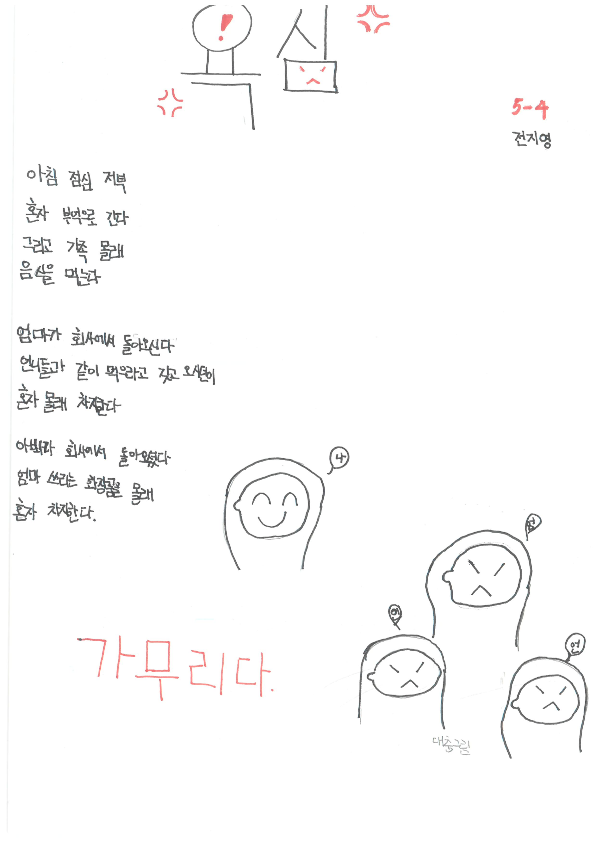 욕심
5-4
전지영
아침 점심 저녁
혼자 부엌으로 간다
그리고 가족 몰래
음식을 먹는다
엄마가 회사에서 돌아오신다
언니들과 같이 먹으라고 갖고 오셨던
혼자 몰래 차지한다
아빠가 회사에서 돌아오셨다
엄마 쓰라는 화장품을 몰래
혼자 차지한다.
나
언
가무리다.
대충그림